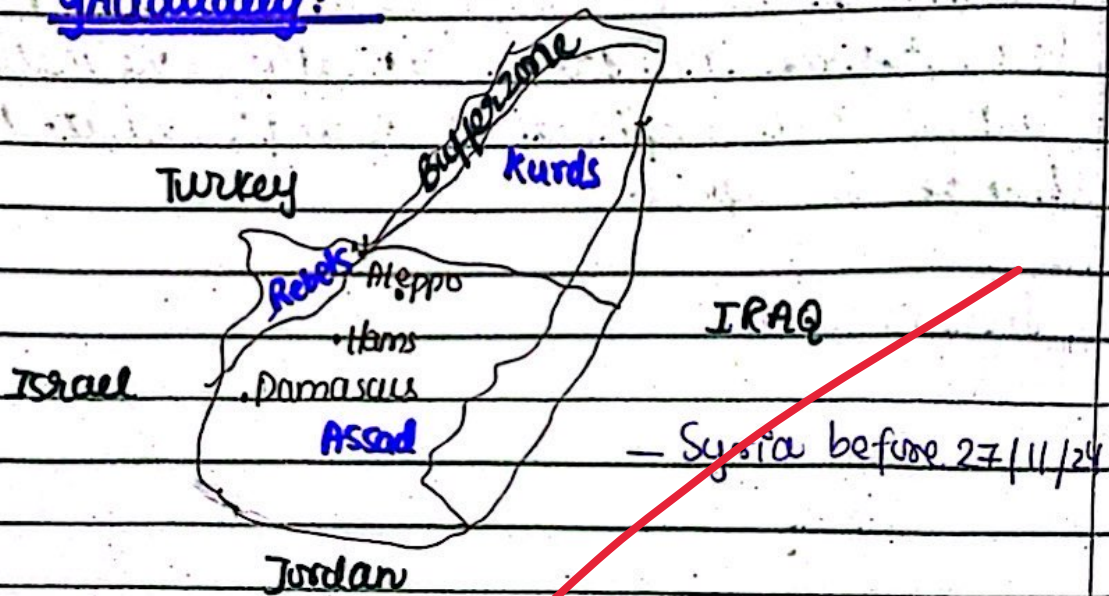 Buffer zone
Kurds
Turkey
Rebels
Aleppo
IRAQ
Hams
Israel
Damascus
Assad
— Syria before 27/11/24
Jordan